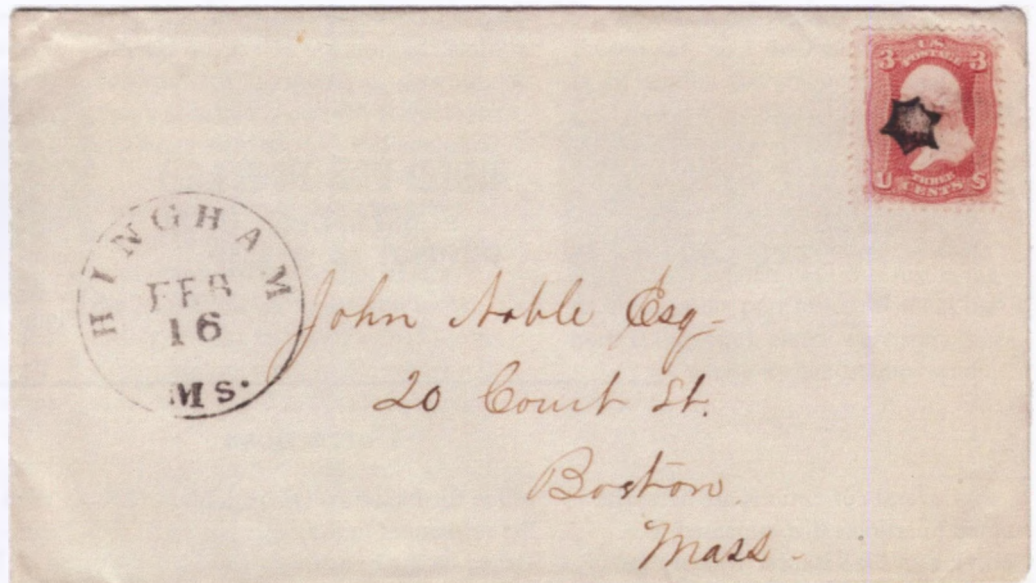 3 U.S. POSTAGE 3
THREE
U CENTS S
HINGHAM
FEB
16
Ms.
John Noble Esq-
20 Court St.
Boston
Mass-